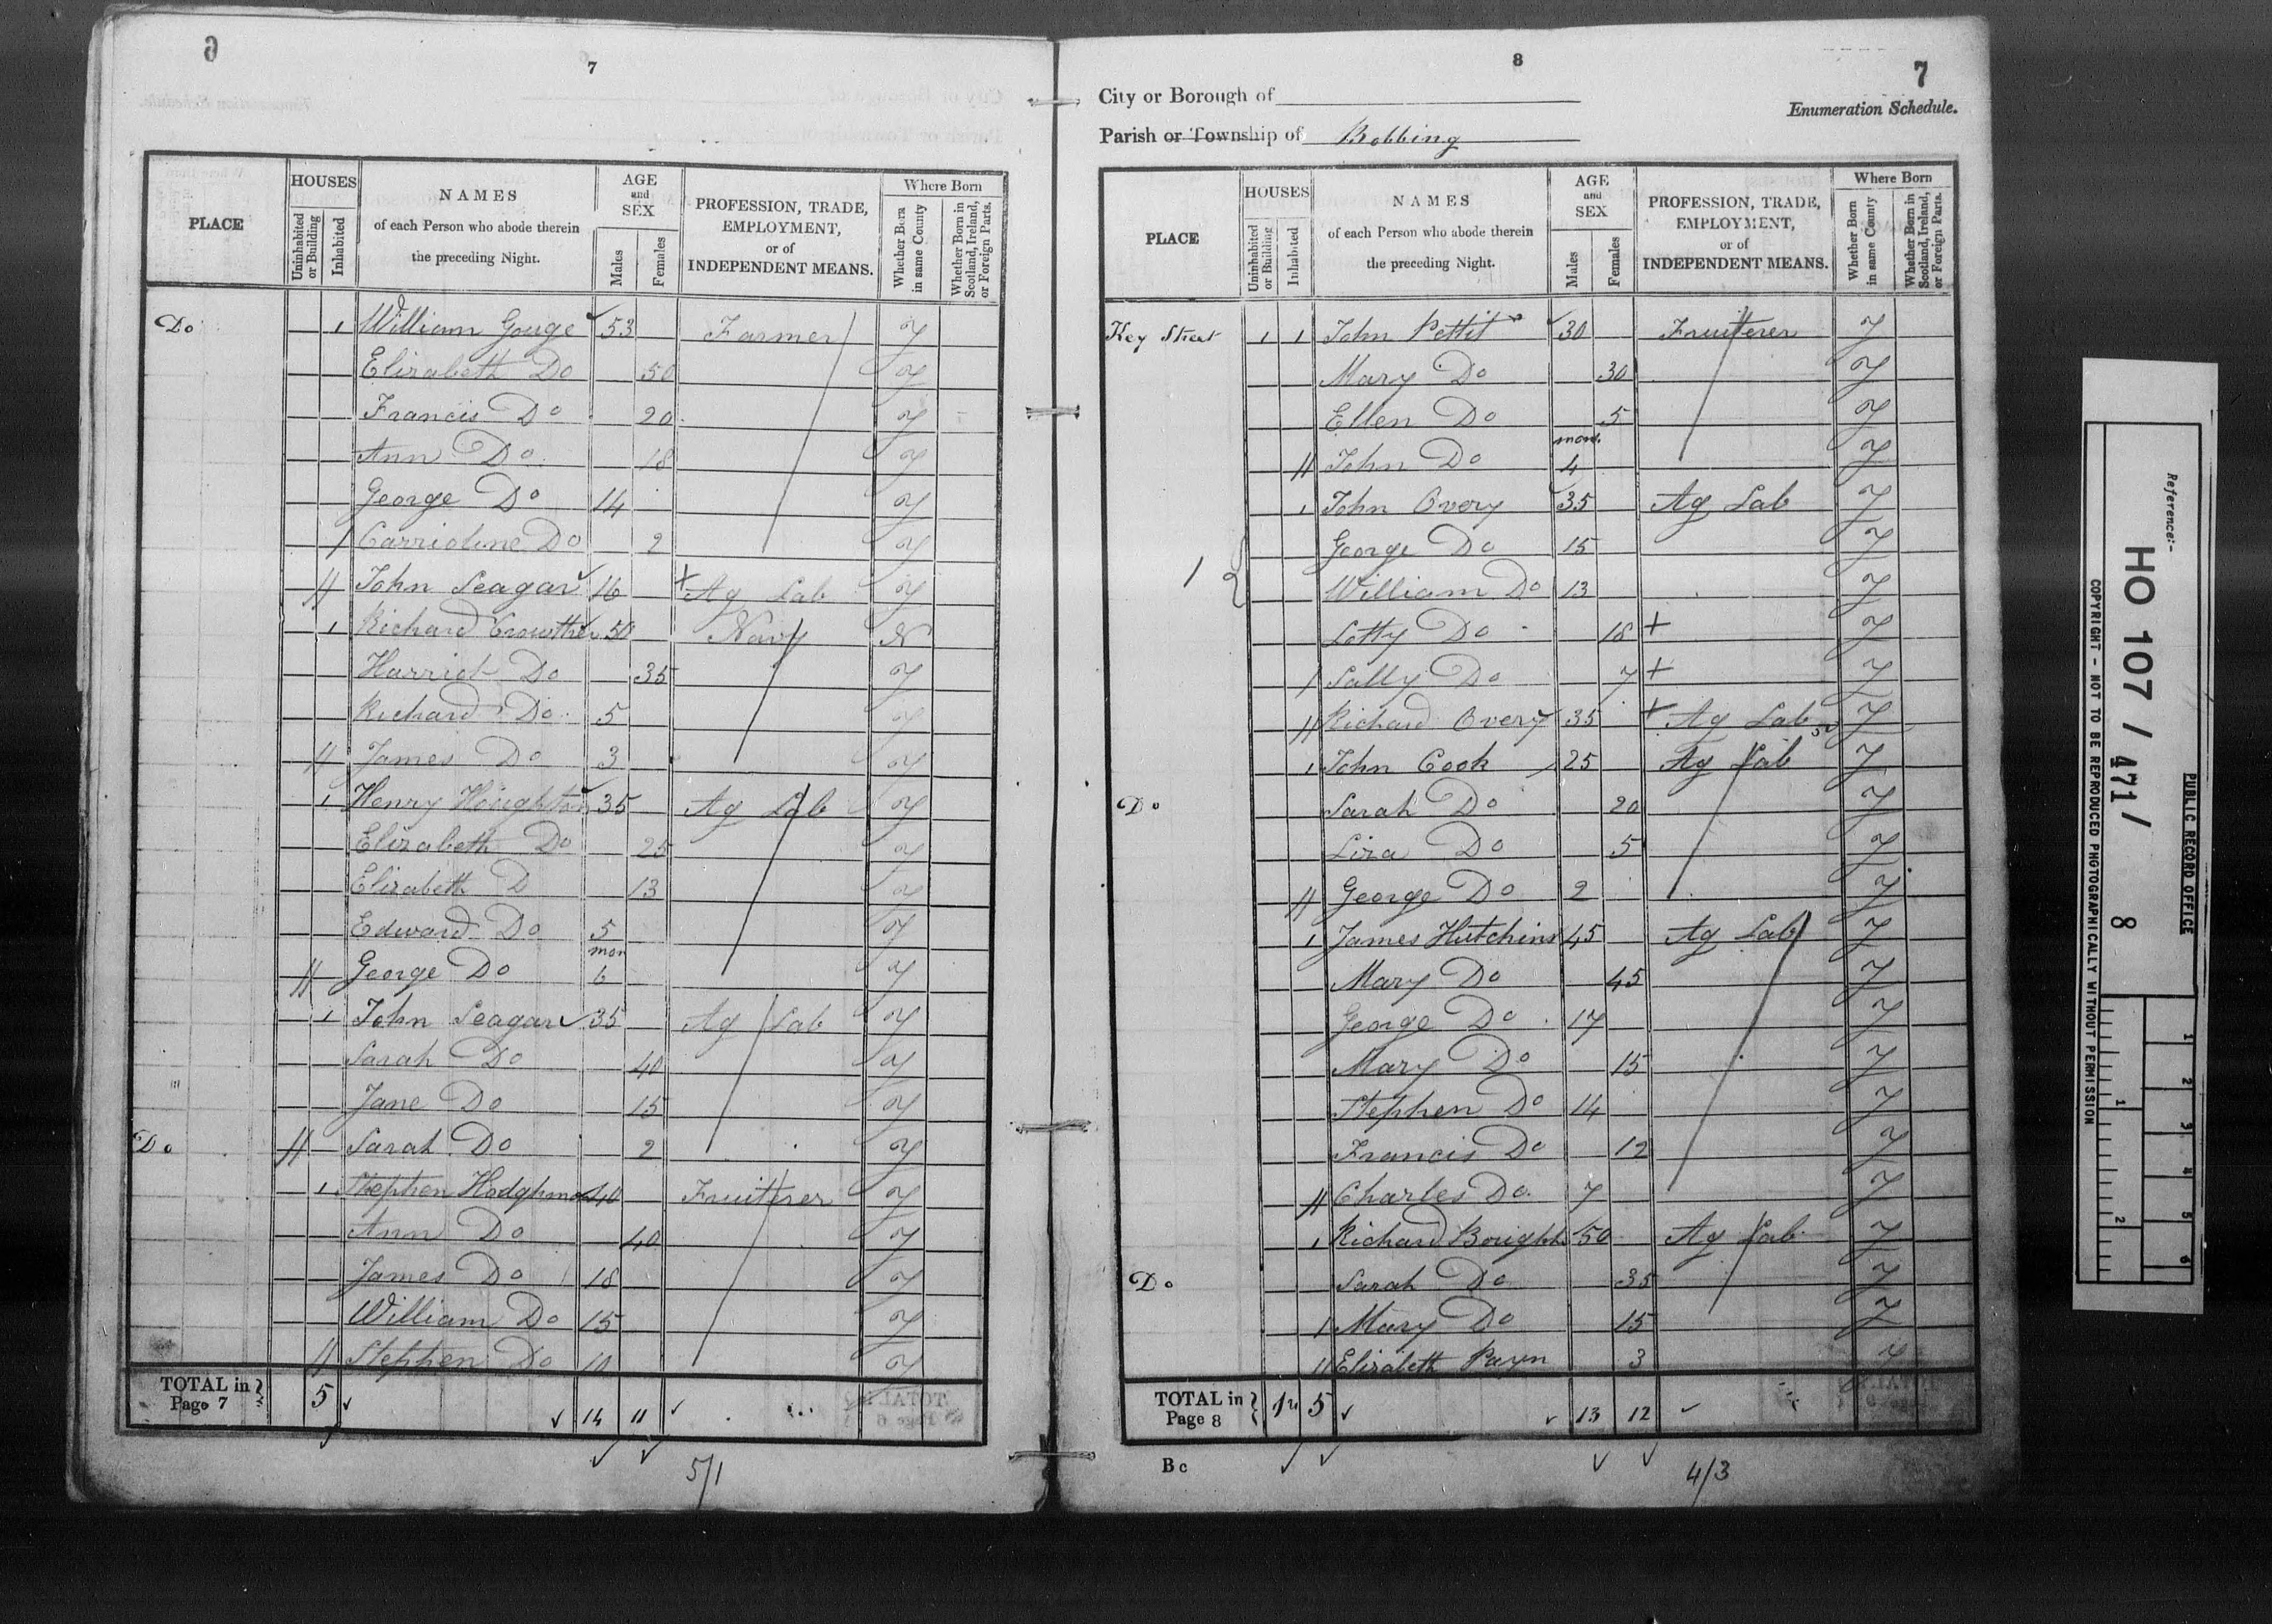 6
7
HOUSES
NAMES
of each Person who abode therein
the preceding Night.
AGE
and
SEX
PROFESSION, TRADE,
EMPLOYMENT,
or of
INDEPENDENT MEANS.
Where Born
PLACE
Uninhabited
or Building
Inhabited
Males
Females
Whether Born
in same County
Whether Born in
Scotland, Ireland,
or Foreign Parts.
Do 1 William Gouge 53 Farmer y
Elizabeth Do 50 y
Francis Do 20 y
Ann Do 18 y
George Do 14 y
Carrioline Do 2 y
John Seagar 16 Ag Lab y
1 Richard Crowther 50 Navy N
Harriot Do 35 y
Richard Do 5 y
James Do 3 y
1 Henry Houghton 35 Ag Lab y
Elizabeth Do 25 y
Elizabeth D 13 y
Edward Do 5 y
George Do mon 6 y
1 John Seagar 35 Ag Lab y
Sarah Do 40 y
Jane Do 15 y
Do Sarah Do 2 y
1 Stephen 40 Fruiterer y
Ann Do 40 y
James Do 18 y
William Do 15 y
Stephen Do 10 y
TOTAL in
Page 7 5 14 11
5/1
8
7
City or Borough of
Enumeration Schedule.
Parish or Township of Bobbing
PLACE
HOUSES
Uninhabited
or Building
Inhabited
NAMES
of each Person who abode therein
the preceding Night.
AGE
and
SEX
Males
Females
PROFESSION, TRADE,
EMPLOYMENT,
or of
INDEPENDENT MEANS.
Where Born
Whether Born
in same County
Whether Born in
Scotland, Ireland,
or Foreign Parts.
Key Street 1 1 John Pettit 30 Fruiterer Y
Mary Do 30 Y
Ellen Do 5 Y
John Do mon. 4 Y
1 John Overy 35 Ag Lab Y
George Do 15 Y
1 William Do 13 Y
Lotty Do 18 Y
Sally Do 7 Y
Richard Overy 35 Ag Lab Y
1 John Cook 25 Ag Lab Y
Do Sarah Do 20 Y
Liza Do 5 Y
George Do 2 Y
1 James Hutchins 45 Ag Lab Y
Mary Do 45 Y
George Do 17 Y
Mary Do 15 Y
Stephen Do 14 Y
Francis Do 12 Y
Charles Do 7 Y
1 Richard 50 Ag Lab Y
Do Sarah Do 35 Y
Mary Do 15 Y
Elizabeth Payn 3 Y
TOTAL in
Page 8 5 13 12
B c
4/3
Reference:-
HO 107 / 471 / 8
PUBLIC RECORD OFFICE
COPYRIGHT - NOT TO BE REPRODUCED PHOTOGRAPHICALLY WITHOUT PERMISSION
1
2
3
4
5
6
1
2